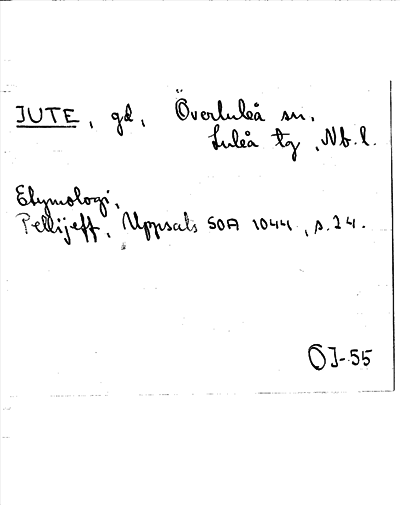 JUTE, gd, Överluleå sn,
Luleå tg, Nb. l.
Etymologi,
Pellijeff, Uppsats SOA 1044, s. 24.
OJ-55